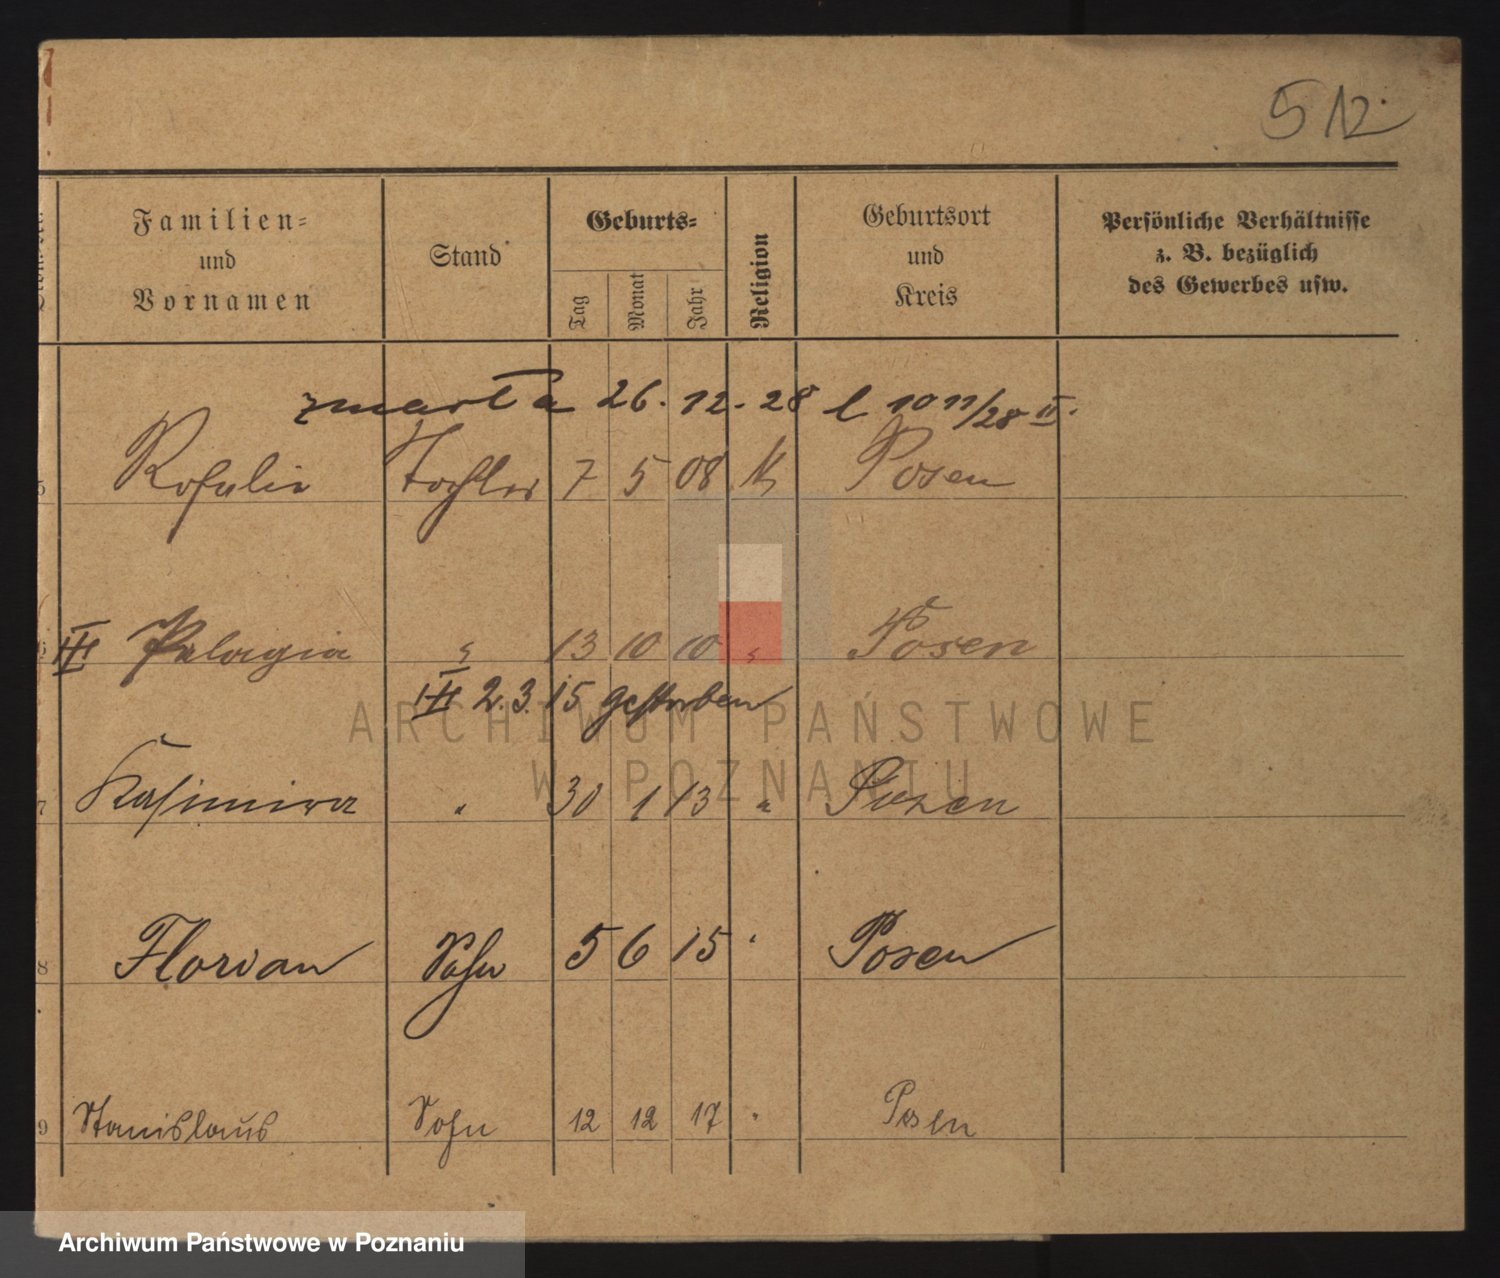 512
Familien-
und
Vornamen
Stand
Geburts-
Tag
Monat
Jahr
Religion
Geburtsort
und
Kreis
Persönliche Verhältnisse
z. B. bezüglich
des Gewerbes usw.
zmarła 26. 12. 28 l 1011/28 II.
5 Rosalie Tochter 7 5 08 K Posen
6 III Pelagia " 13 10 10 " Posen
III 2. 3. 15 gestorben
7 Kasimira " 30 1 13 " Posen
8 Florian Sohn 5 6 15 " Posen
9 Stanislaus Sohn 12 12 17 " Posen
ARCHIWUM PAŃSTWOWE
W POZNANIU
Archiwum Państwowe w Poznaniu